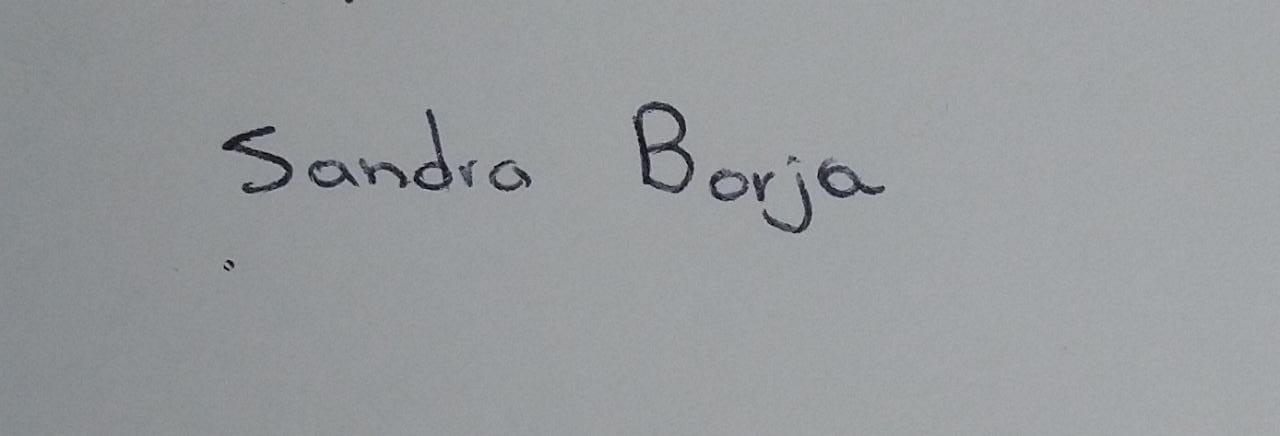 Sandra Borja